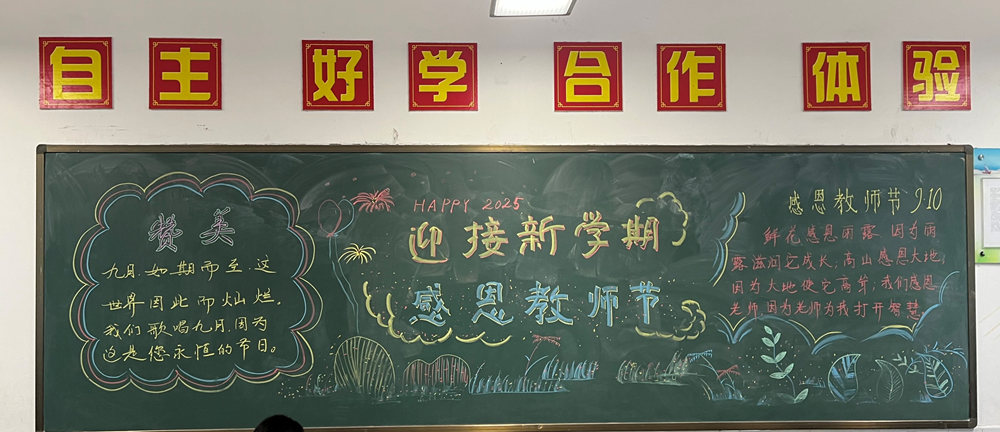 自主 好学 合作 体验
赞美
九月.如期而至.这
世界因此而灿烂.
我们歌唱九月.因为
这是您永恒的节日。
HAPPY 2025
迎接新学期
感恩教师节
感恩教师节9.10
鲜花感恩雨露.因为雨
露滋润它成长;高山感恩大地,
因为大地使它高耸;我们感恩
老师.因为老师为我打开智慧